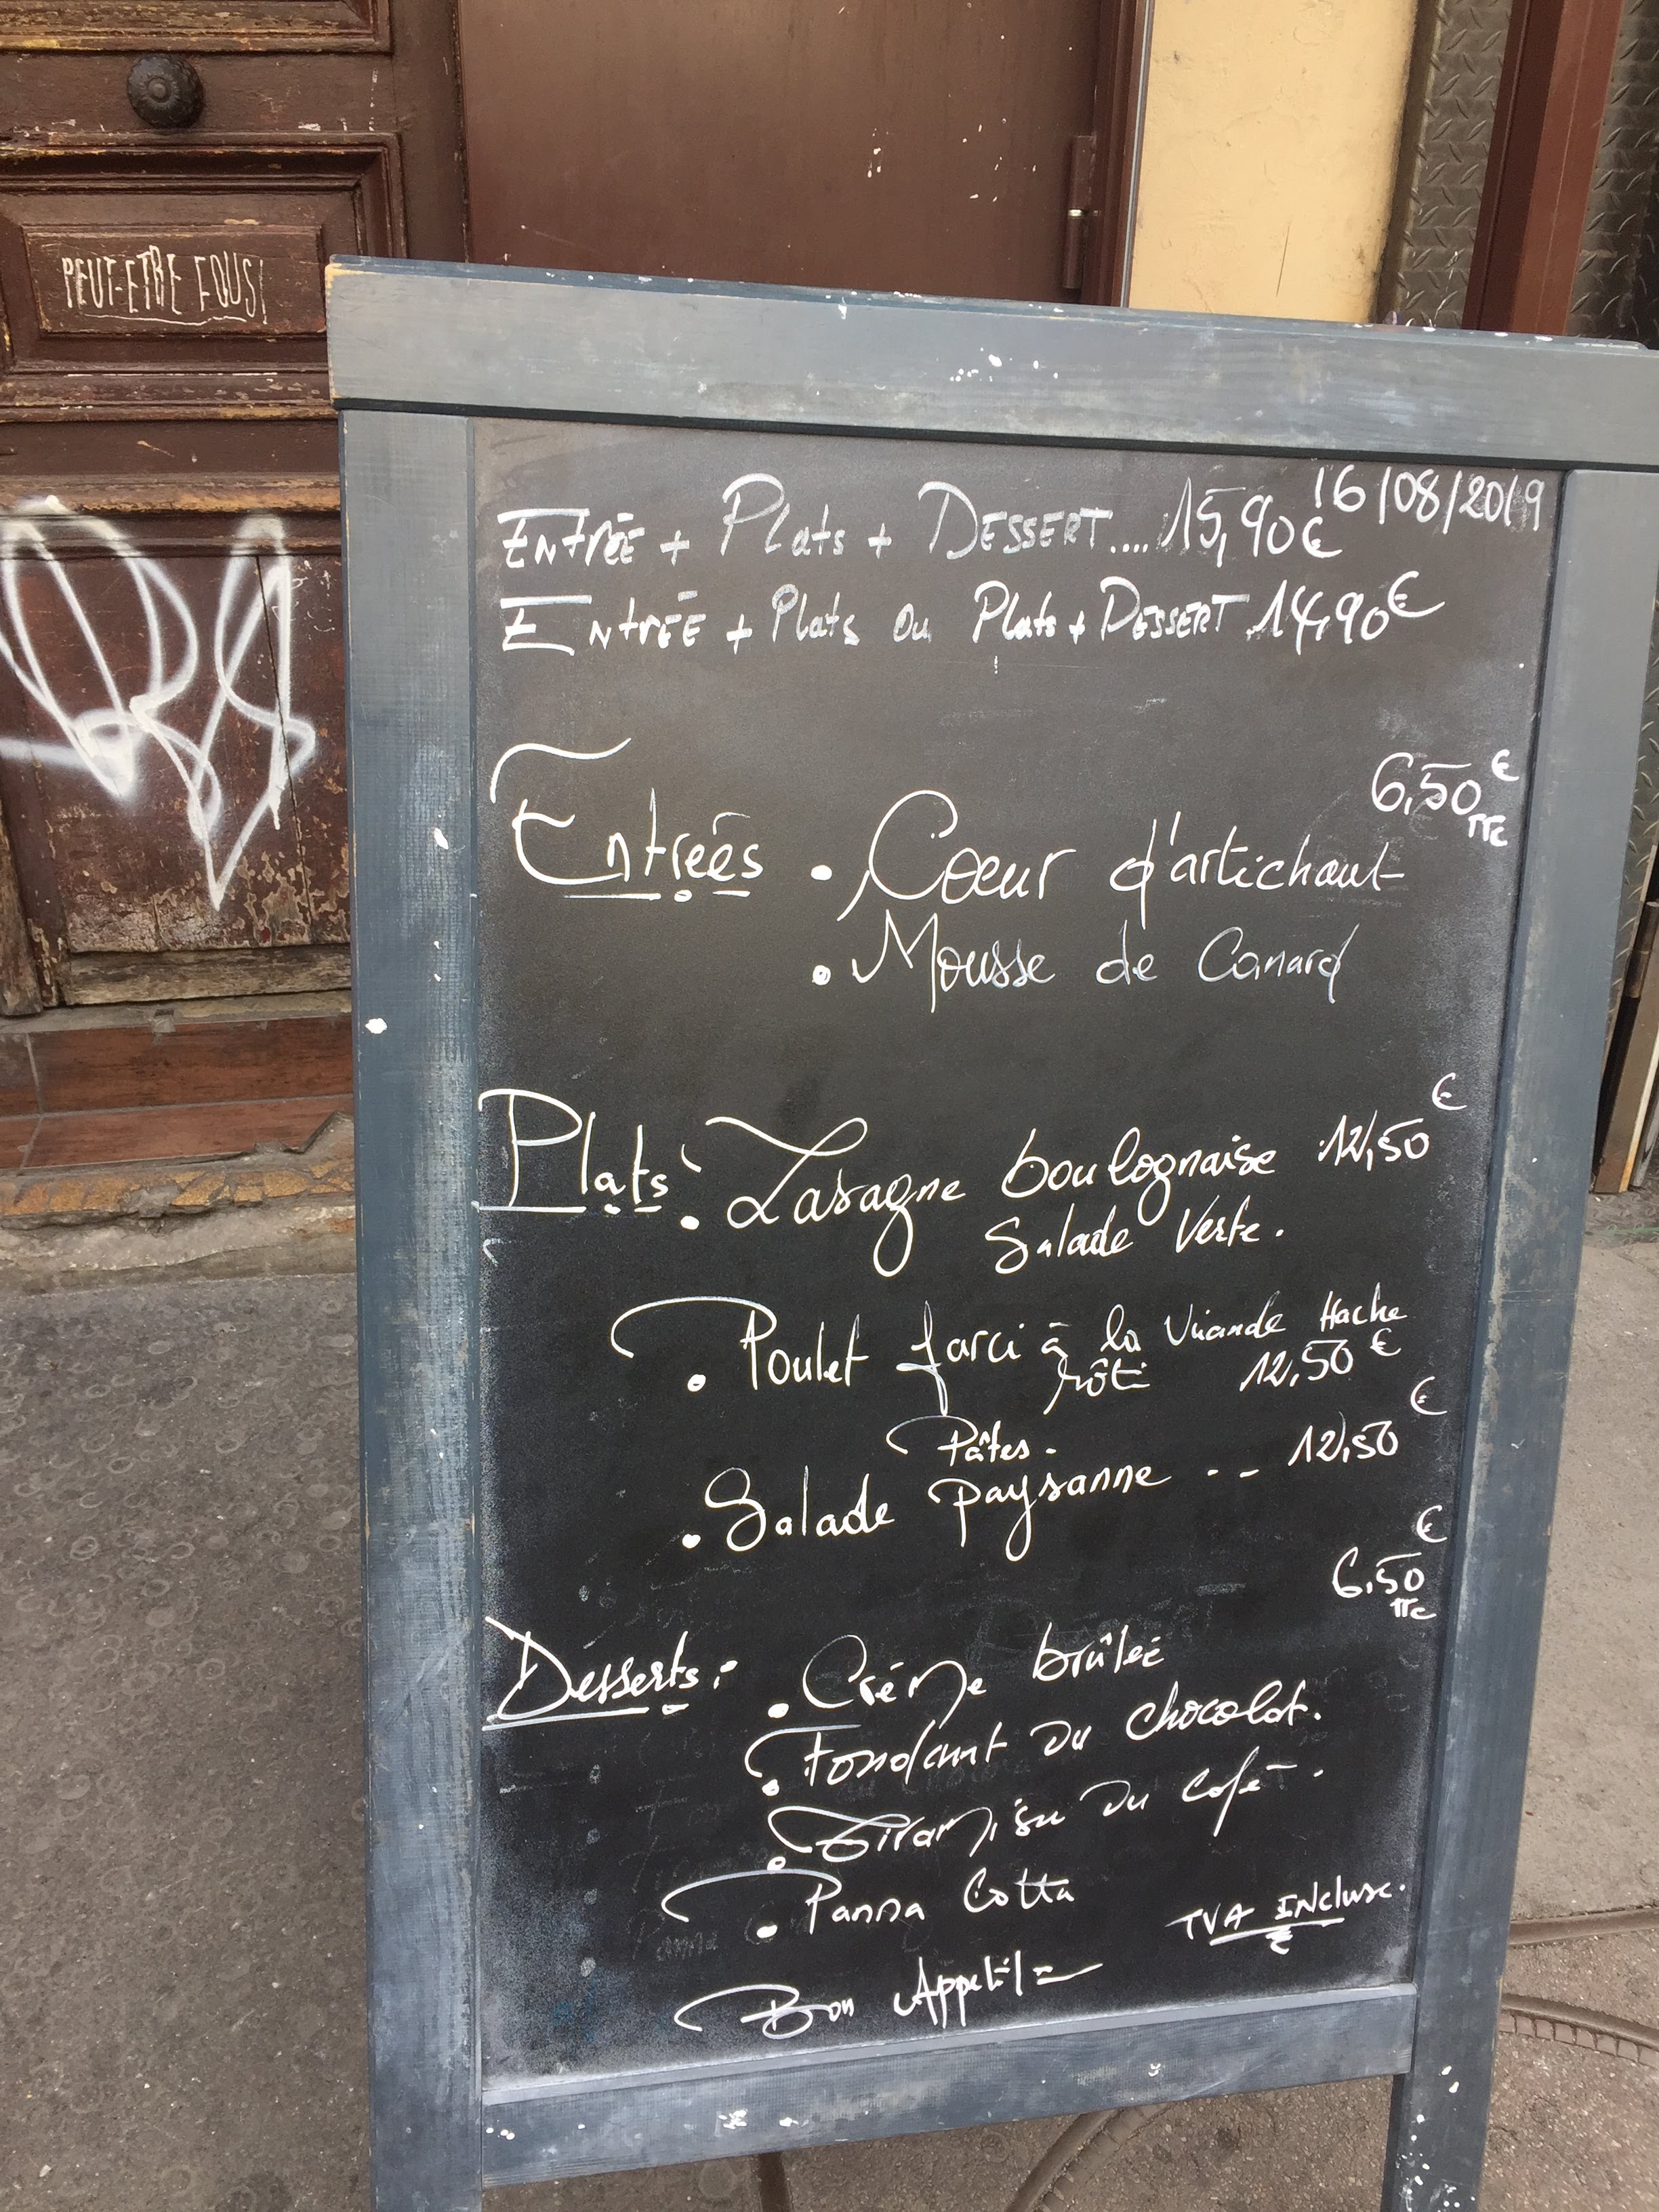 PEUT-ETRE FOUS!
16/08/2019
ENTRÉE + Plats + DESSERT.... 15,90€
ENTRÉE + Plats ou Plats + DESSERT. 14,90€
6,50€
TTC
Entrées • Coeur d'artichaut
• Mousse de Canard
Plats: • Lasagne boulognaise 12,50€
Salade Verte.
• Poulet farci à la Viande Hache
rôti 12,50€
Pâtes.
• Salade Paysanne -- 12,50€
6,50€
TTC
Desserts: • Créme brûlée
• Fondant au chocolat.
• Tiramisu au café.
• Panna Cotta
TVA INCluse.
Bon Appétit